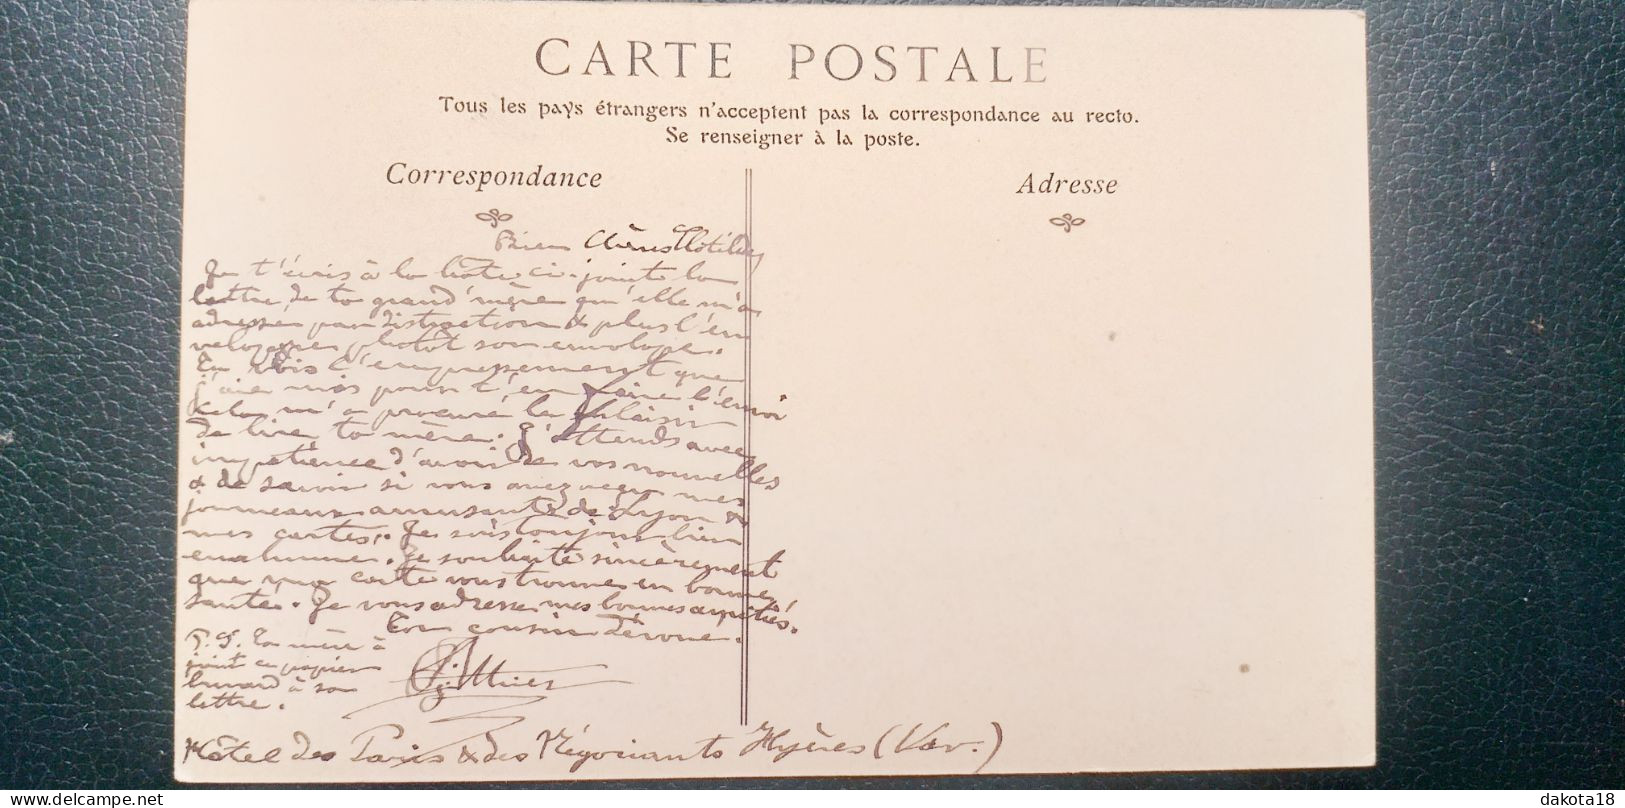 CARTE POSTALE
Tous les pays étrangers n'acceptent pas la correspondance au recto.
Se renseigner à la poste.
Correspondance
Adresse
Bien Chère Clotilde
Je t'écris à la hâte ci-jointe la
lettre de ta grand'mère qu'elle m'a
adressée par distraction & plus l'en
veloppe plutôt son envelope.
Tu vois l'empressement que
j'aie mis pour t'en faire l'envoi
Cela m'a procuré le plaisir
de lire ta mère. J'attends avec
impatience d'avoir de vos nouvelles
& de savoir si vous avez reçu mes
journeaux amusants de Lyon &
mes cartes. Je suis toujours bien
enrhumé. Je souhaite sincèrement
que ma carte vous trouve en bonne
santé. Je vous adresse mes bonnes amitiés.
Ton cousin dévoué.
P.S. Ta mère à
joint ce papier
buvard à sa
lettre.
Hôtel des Paris & des Négociants Hyères (Var.)
dakota18